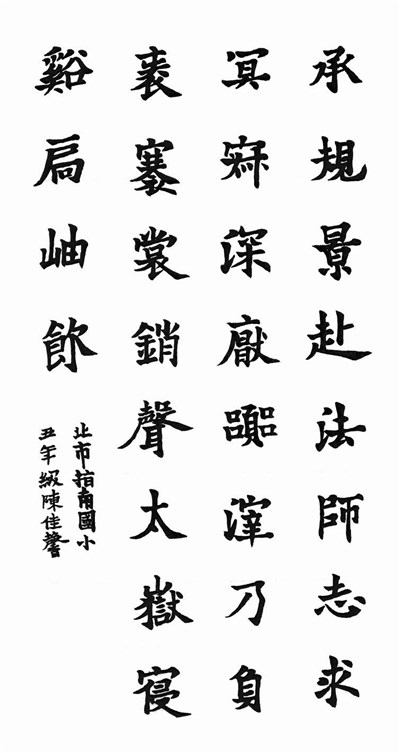 承規景赴法師志求
冥寂深厭囂滓乃負
袠褰裳銷聲太嶽寑
谿扃岫飲
北市指南國小
五年級陳佳馨